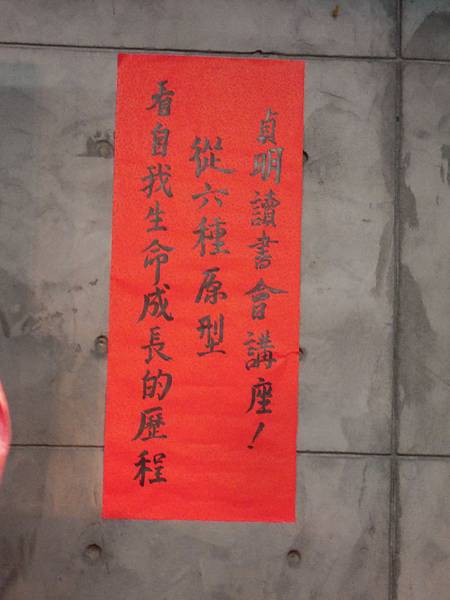 貞明讀書會講座！
從六種原型
看自我生命成長的歷程